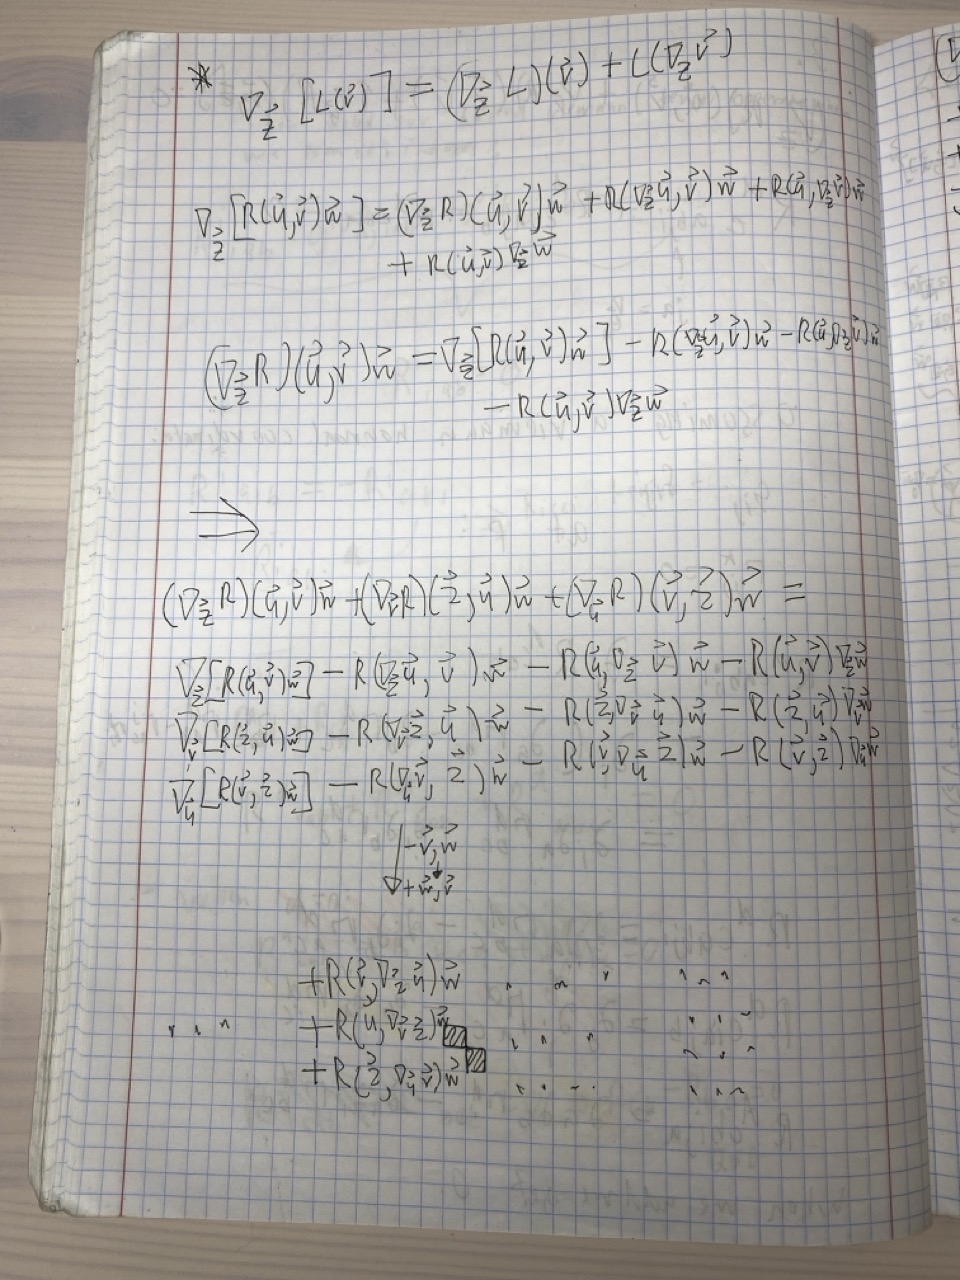 * ∇_z⃗ [L(v⃗)] = (∇_z⃗ L)(v⃗) + L(∇_z⃗ v⃗)
∇_z⃗ [R(u⃗,v⃗)w⃗] = (∇_z⃗ R)(u⃗,v⃗)w⃗ + R(∇_z⃗ u⃗,v⃗)w⃗ + R(u⃗,∇_z⃗ v⃗)w⃗
+ R(u⃗,v⃗)∇_z⃗ w⃗
(∇_z⃗ R)(u⃗,v⃗)w⃗ = ∇_z⃗ [R(u⃗,v⃗)w⃗] − R(∇_z⃗ u⃗,v⃗)w⃗ − R(u⃗,∇_z⃗ v⃗)w⃗
− R(u⃗,v⃗)∇_z⃗ w⃗
⇒
(∇_z⃗ R)(u⃗,v⃗)w⃗ + (∇_v⃗ R)(z⃗,u⃗)w⃗ + (∇_u⃗ R)(v⃗,z⃗)w⃗ =
∇_z⃗ [R(u⃗,v⃗)w⃗] − R(∇_z⃗ u⃗, v⃗)w⃗ − R(u⃗,∇_z⃗ v⃗)w⃗ − R(u⃗,v⃗)∇_z⃗ w⃗
∇_v⃗ [R(z⃗,u⃗)w⃗] − R(∇_v⃗ z⃗, u⃗)w⃗ − R(z⃗,∇_v⃗ u⃗)w⃗ − R(z⃗,u⃗)∇_v⃗ w⃗
∇_u⃗ [R(v⃗,z⃗)w⃗] − R(∇_u⃗ v⃗, z⃗)w⃗ − R(v⃗,∇_u⃗ z⃗)w⃗ − R(v⃗,z⃗)∇_u⃗ w⃗
↓ −v⃗,w⃗
+w⃗,v⃗
+R(v⃗,∇_z⃗ u⃗)w⃗ ... ...
... +R(u⃗,∇_v⃗ z⃗)w⃗ ... ...
+R(z⃗,∇_u⃗ v⃗)w⃗ ... ...